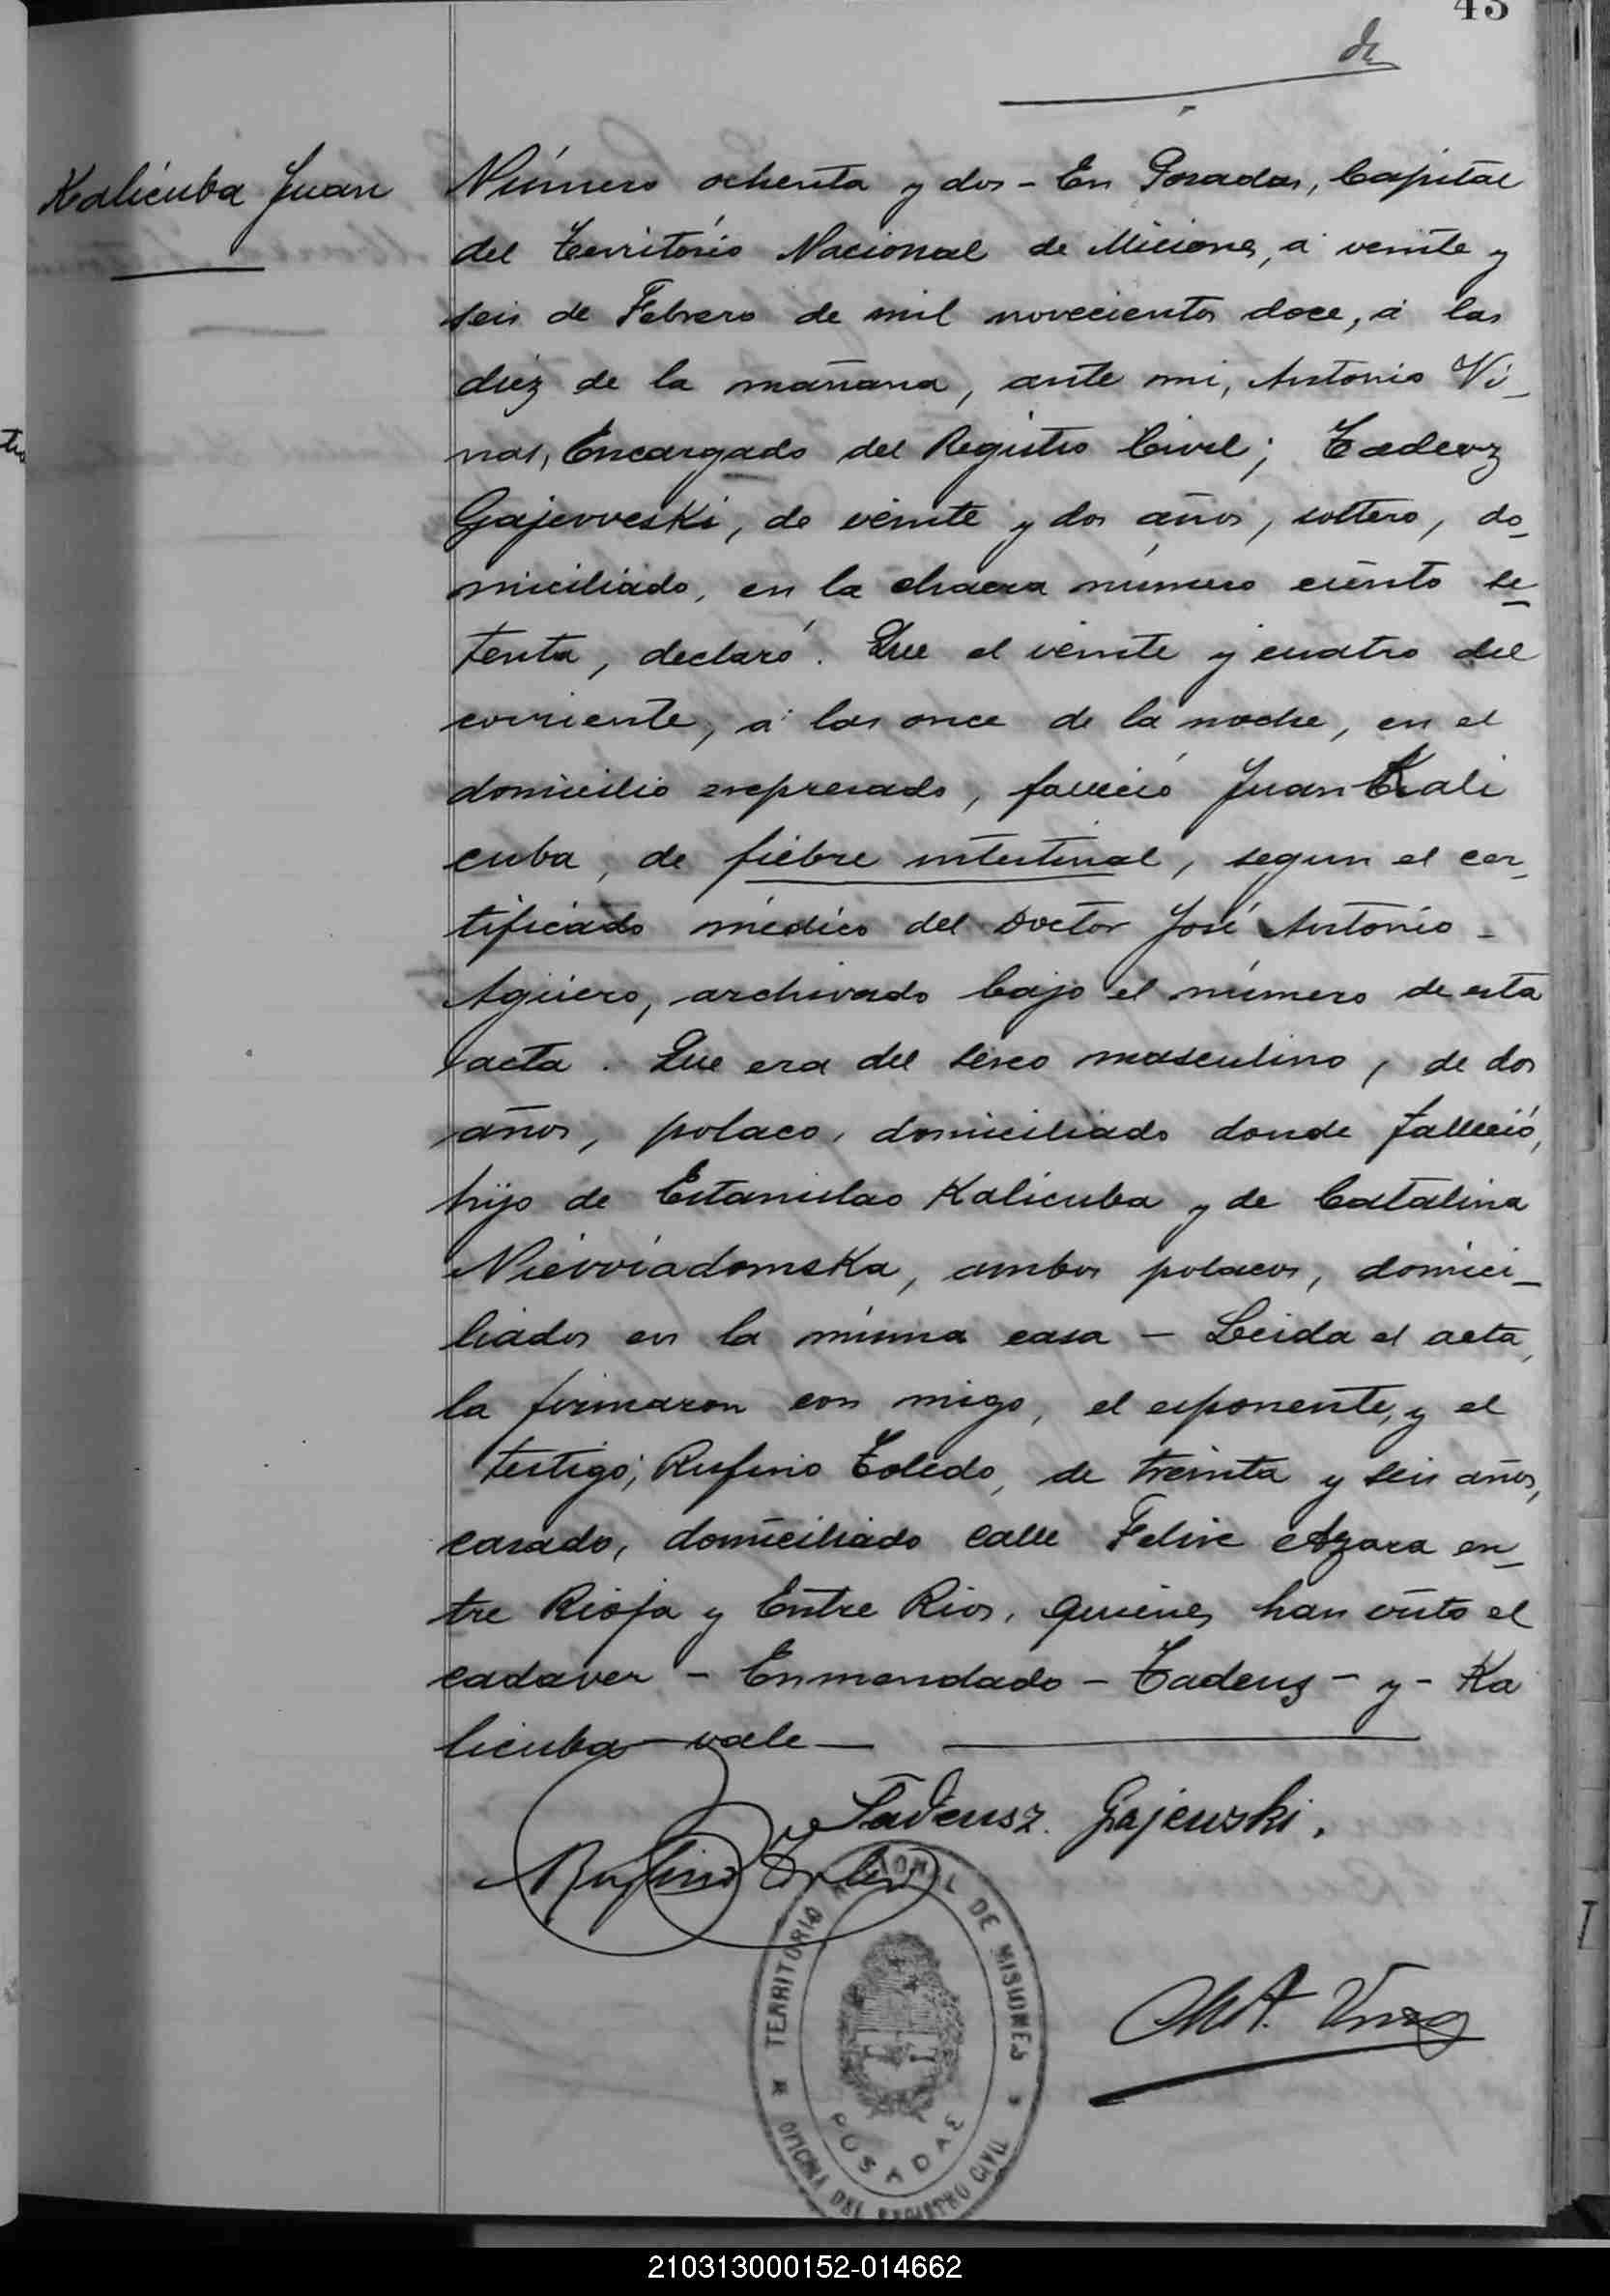 43
Kalicuba Juan
Número ochenta y dos - En Posadas, Capital
del Territorio Nacional de Miciones, á veinte y
seis de Febrero de mil novecientos doce, á las
diez de la mañana, ante mi, Antonio Vi-
nas, Encargado del Registro Civil; Tadeuz
Gajewveski, de veinte y dos años, soltero, do-
miciliado, en la chacra número ciento se-
tenta, declaró. Que el veinte y cuatro del
corriente, á las once de la noche, en el
domicilio expresado, falleció Juan Kali
cuba, de fiebre intestinal, segun el cer-
tificado médico del Doctor José Antonio -
Agüero, archivado bajo el número de esta
acta. Que era del sexo masculino, de dos
años, polaco, domiciliado donde falleció,
hijo de Estanislao Kalicuba y de Catalina
Niewiadomska, ambos polacos, domici-
liados en la misma casa - Leida el acta,
la firmaron con migo, el esponente, y el
testigo; Rufino Toledo, de treinta y seis años,
casado, domiciliado calle Felix Azara en-
tre Rioja y Entre Rios, quienes han visto el
cadaver - Enmendado - Tadeuz - y - Ka
licuba - vale -
Tadeusz Gajewski.
Rufino Toledo
TERRITORIO NACIONAL DE MISIONES
POSADAS
OFICINA DEL REGISTRO CIVIL
210313000152-014662